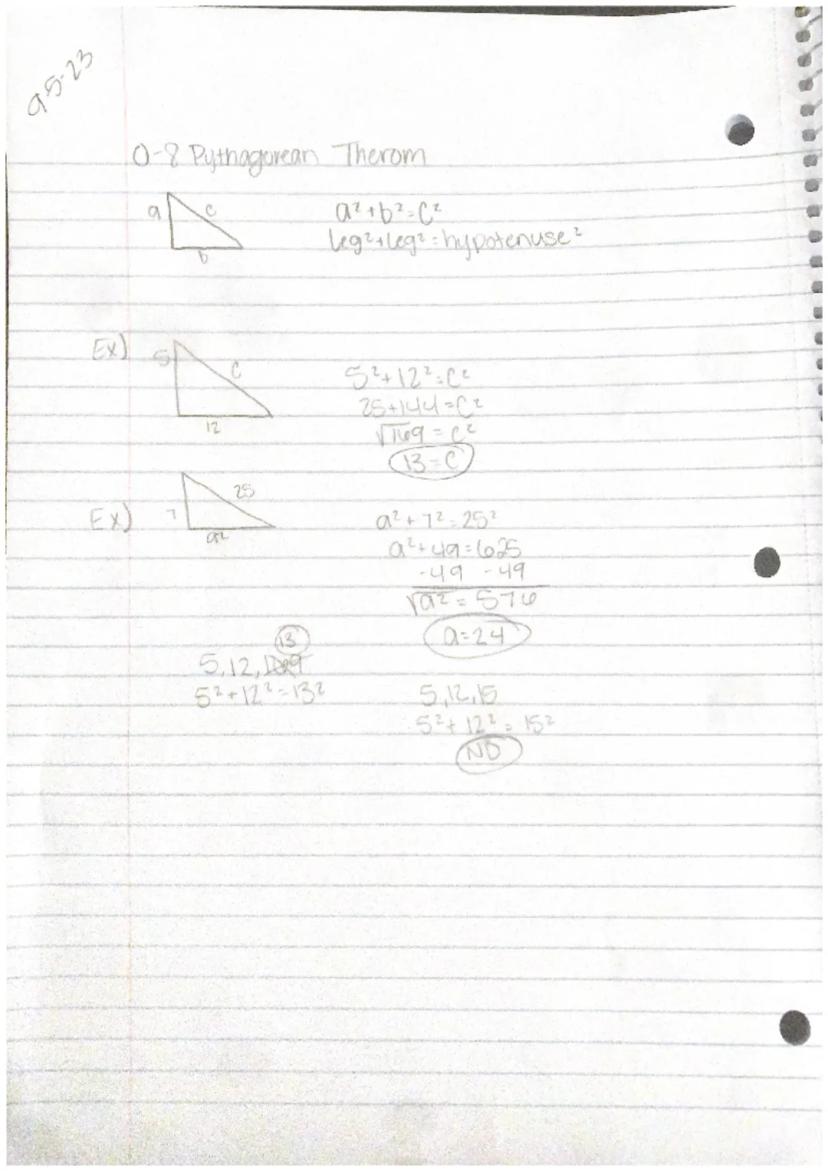 9-5-23
0-8 Pythagorean Therom
a c b
a²+b²=c²
leg²+leg²=hypotenuse²
Ex)
5 c 12
5²+12²=c²
25+144=c²
√169=c²
13=c
Ex)
25 7 a²
a²+7²=25²
a²+49=625
-49 -49
√a²=576
a=24
13
5,12,169
5²+12²=13²
5,12,15
5²+12²=15²
NO